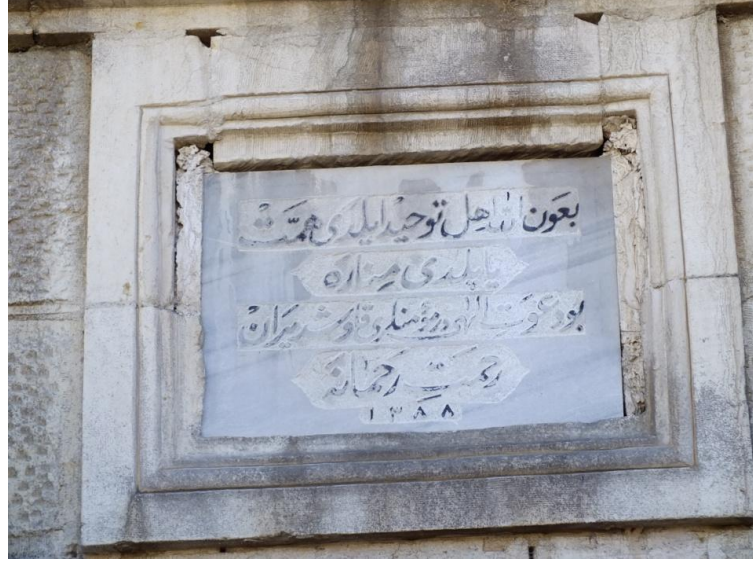 بعون الله اهل توحید ایلدی همّت
یاپلدی مناره
بو دعوت الهی در مؤمنلری قاوشدیران
رحمتِ رحمانه
١٣٨٨